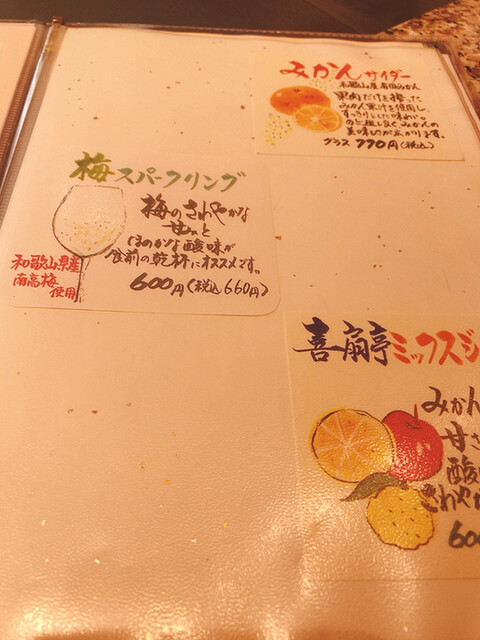 みかんサイダー
和歌山産 有田みかん
果肉だけを搾った
みかん果汁を使用し、
すっきりとした味わい。
のど越し良くみかんの
美味しさが広がります。
グラス 770円(税込)
梅スパークリング
梅のさわやかな
甘みと
ほのかな酸味が
食前の乾杯にオススメです。
和歌山県産
南高梅
使用
600円(税込660円)
喜扇亭ミックスジ
みかん
甘さ
酸
さわや
600